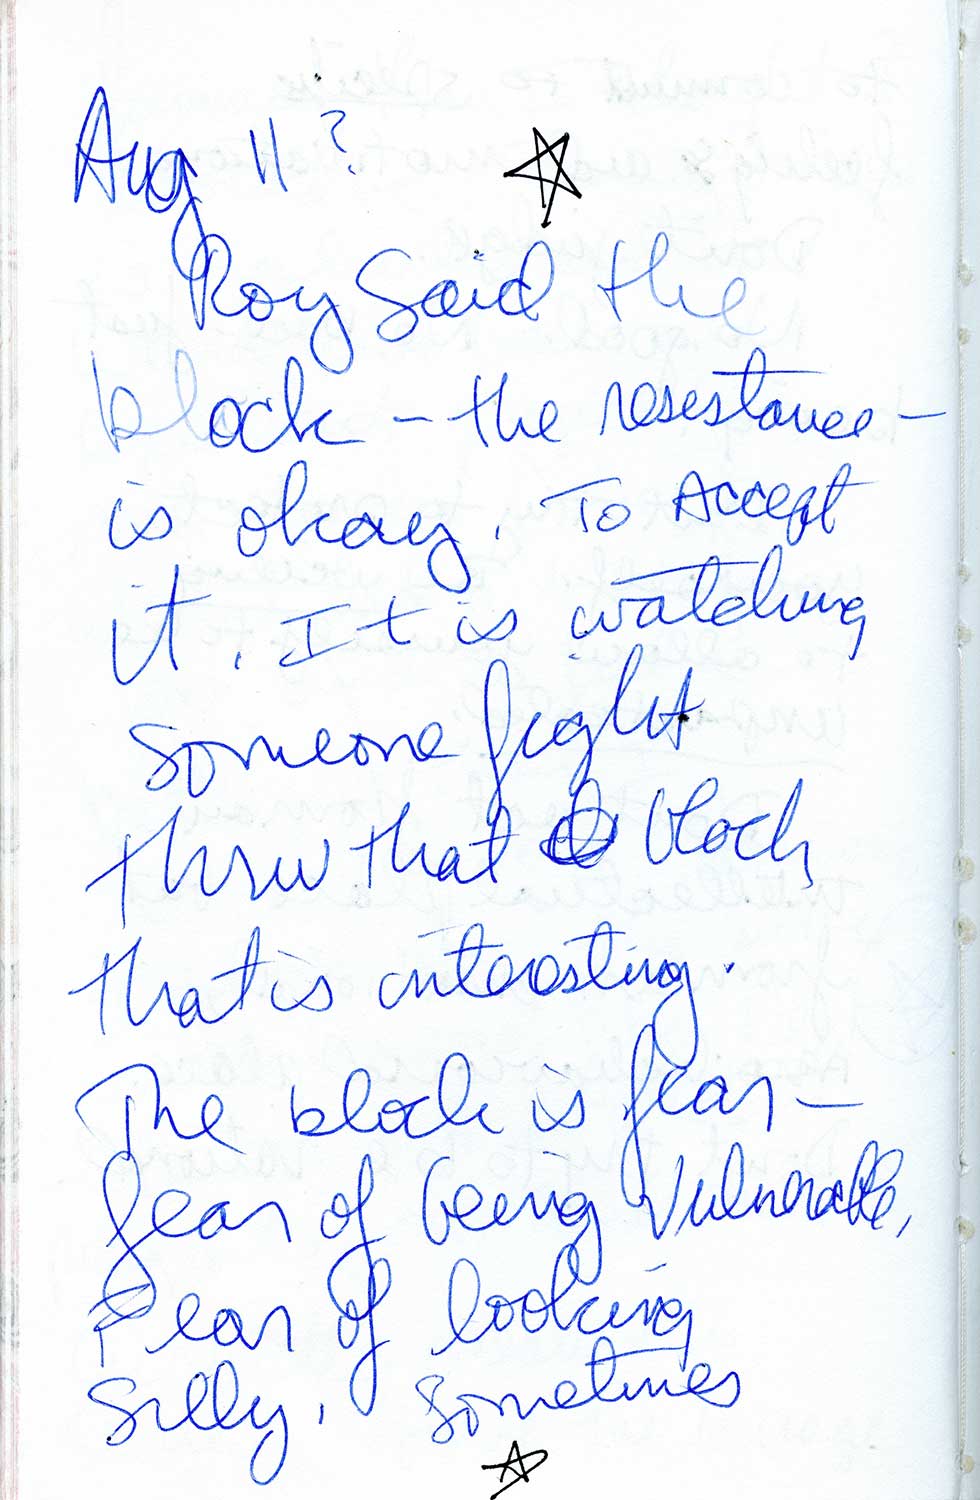 Aug 11?
Roy Said the
block – the resestance –
is okay. To Accept
it. It is watching
someone fight
thruw that block
that is interesting.
The block is fear –
fear of being vulnerable,
Fear of looking
silly. Sometimes